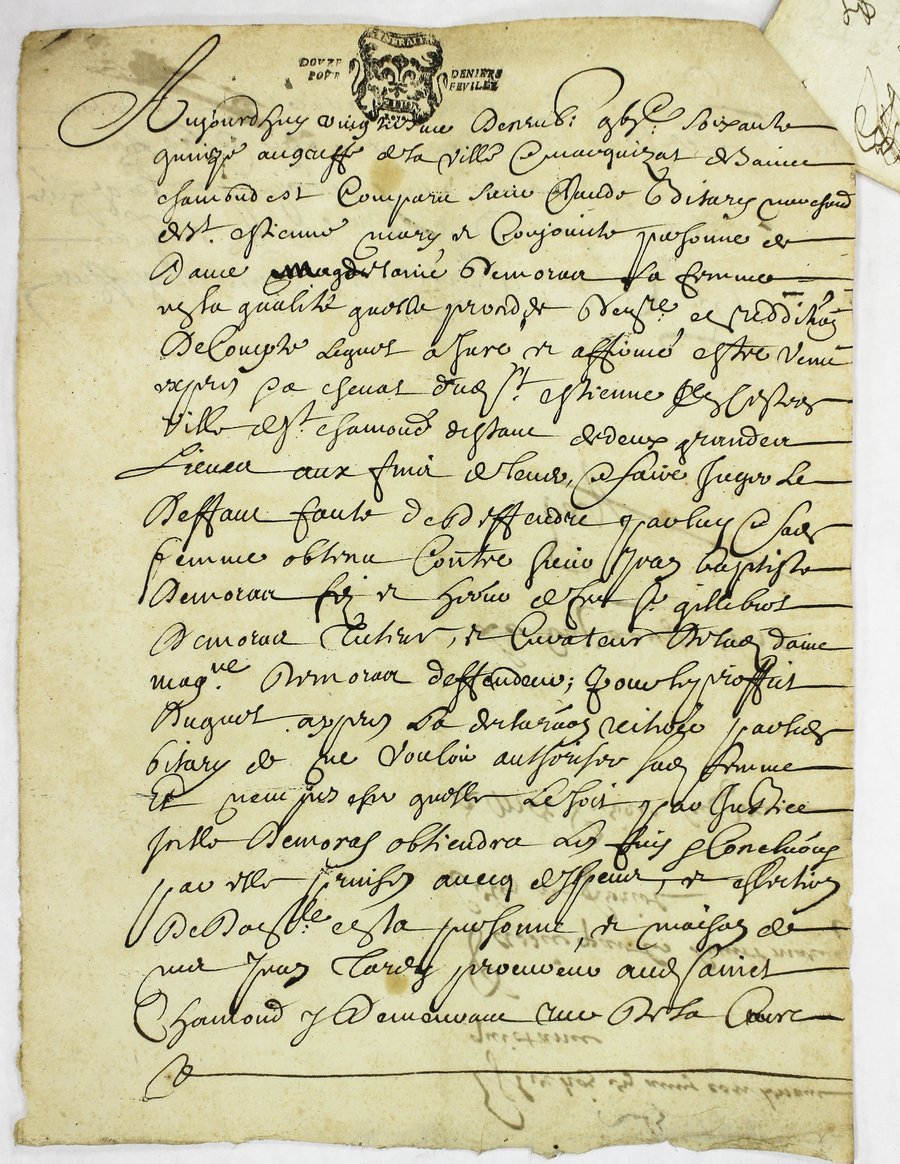 GENERALITE
DOVZE DENIERS
POVR FEVILLE
LION
Aujourdhuy vingt Decemb: gbj^c. soixante
quinze au greffe de la ville & marquizat de Sainct
chamond est Comparu sieur Claude Bitary marchand
de St. estienne mary et Conjointe personne de
Dame Magdelaine Demoras sa femme
en la qualité quelle procedde & reddition
De Compte lequel a Juré et affirmé estre venu
expres a cheval dud St. estienne en ceste
ville de St. chamond distant de deux grandes
Lieues aux fins de lever, & faire Juger Le
Deffaut faute de deffendre par luy & sad
femme obtenu Contre sieur Jean baptiste
Demoras fils et heritier de feu Sr. gillebert
Demoras Tuteur, et Curateur De lad dame
mag^ne. Demoras deffendeur; Pour le proffit
Duquel appres La declaration reitérée par led
bitary de ne vouloir authoriser sad femme
Et nempescher quelle Le soit par Justice
Icelle Demoras obtiendra Les fins & Conclusions
par elle prinses avecq despens, et eslection
De Domlle en la personne, et maison de
me Jean Tardy procureur aud Sainct
Chamond y Demeurant rue De la
&